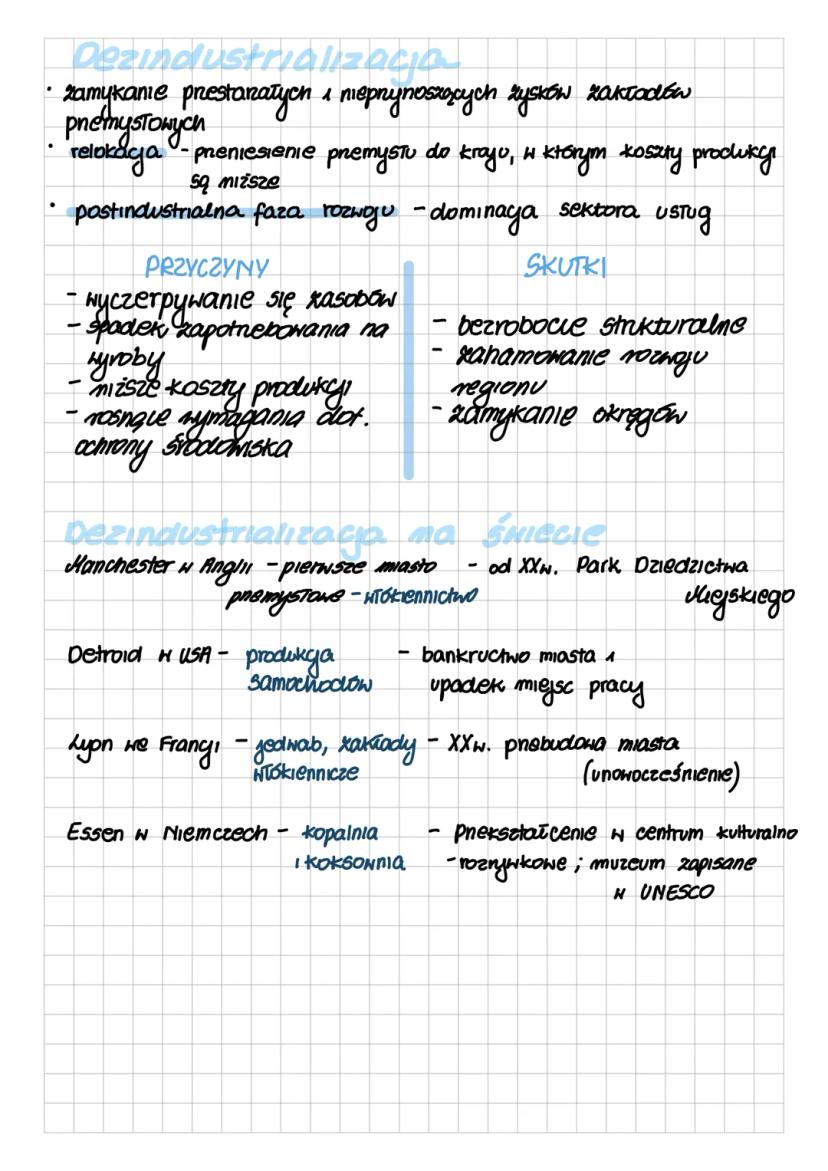 Dezindustrializacja
• zamykanie przestarzałych i nieprzynoszących zysków zakładów
przemysłowych
• relokacja - przeniesienie przemysłu do kraju, w którym koszty produkcji
są niższe
• postindustrialna faza rozwoju - dominacja sektora usług
PRZYCZYNY
- wyczerpywanie się zasobów
- spadek zapotrzebowania na
wyroby
- niższe koszty produkcji
- rosnące wymagania dot.
ochrony środowiska
SKUTKI
- bezrobocie strukturalne
- zahamowanie rozwoju
regionu
- zamykanie okręgów
Dezindustrializacja na świecie
Manchester w Anglii - pierwsze miasto - od XXw. Park Dziedzictwa
przemysłowe - włókiennictwo Miejskiego
Detroid w USA - produkcja - bankructwo miasta i
samochodów upadek miejsc pracy
Lyon we Francji - jedwab, zakłady - XXw. przebudowa miasta
włókiennicze (unowocześnienie)
Essen w Niemczech - kopalnia - przekształcenie w centrum kulturalno
i koksownia - rozrywkowe ; muzeum zapisane
w UNESCO